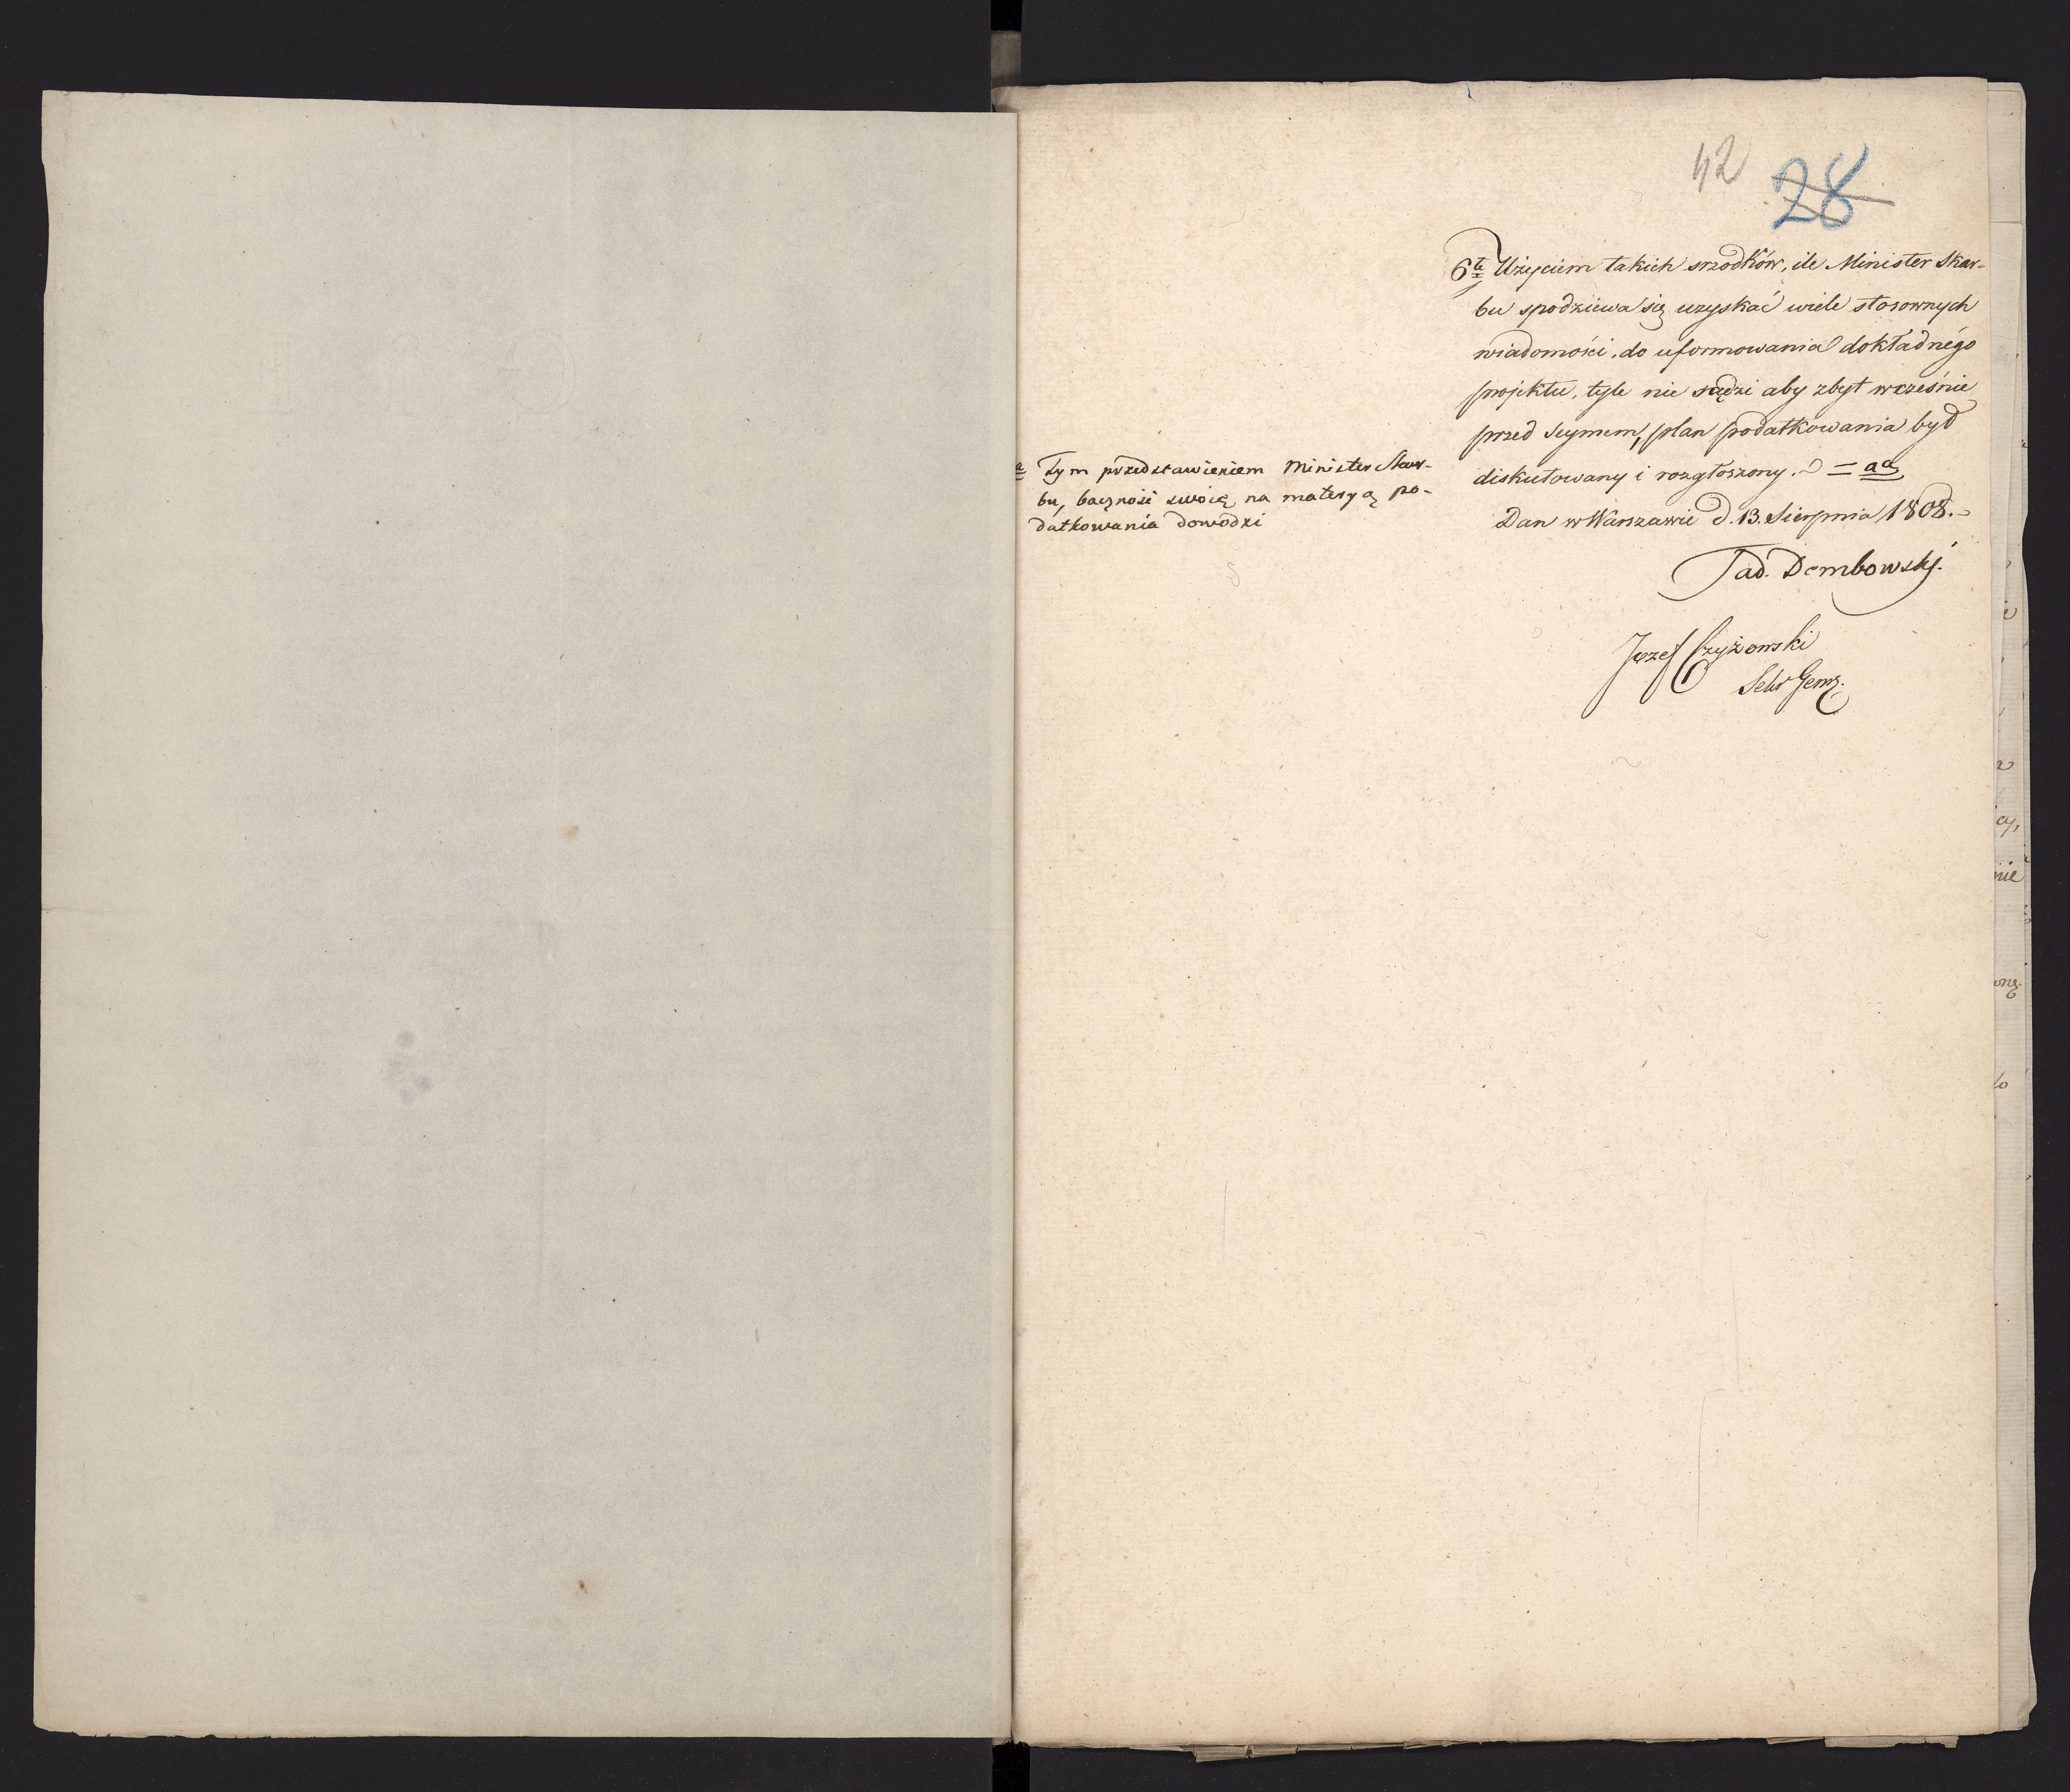 42 28
6te Użyciem takich srzodków, ile Minister Skar-
bu spodziewa się uzyskać wiele stosownych
wiadomości, do uformowania dokładnégo
projektu, tyle nie sądzi aby zbyt wcześnie
przed Seymem, plan podatkowania był
diskutowany i rozgłoszony. = aa
Dan w Warszawie d. 13. Sierpnia 1808.
Tad. Dembowskj.
Jozef Czyżowski
Sekr Genr.
Tym przedstawieniem Minister Skar-
bu, baczność swoię, na materyą po-
datkowania dowodzi